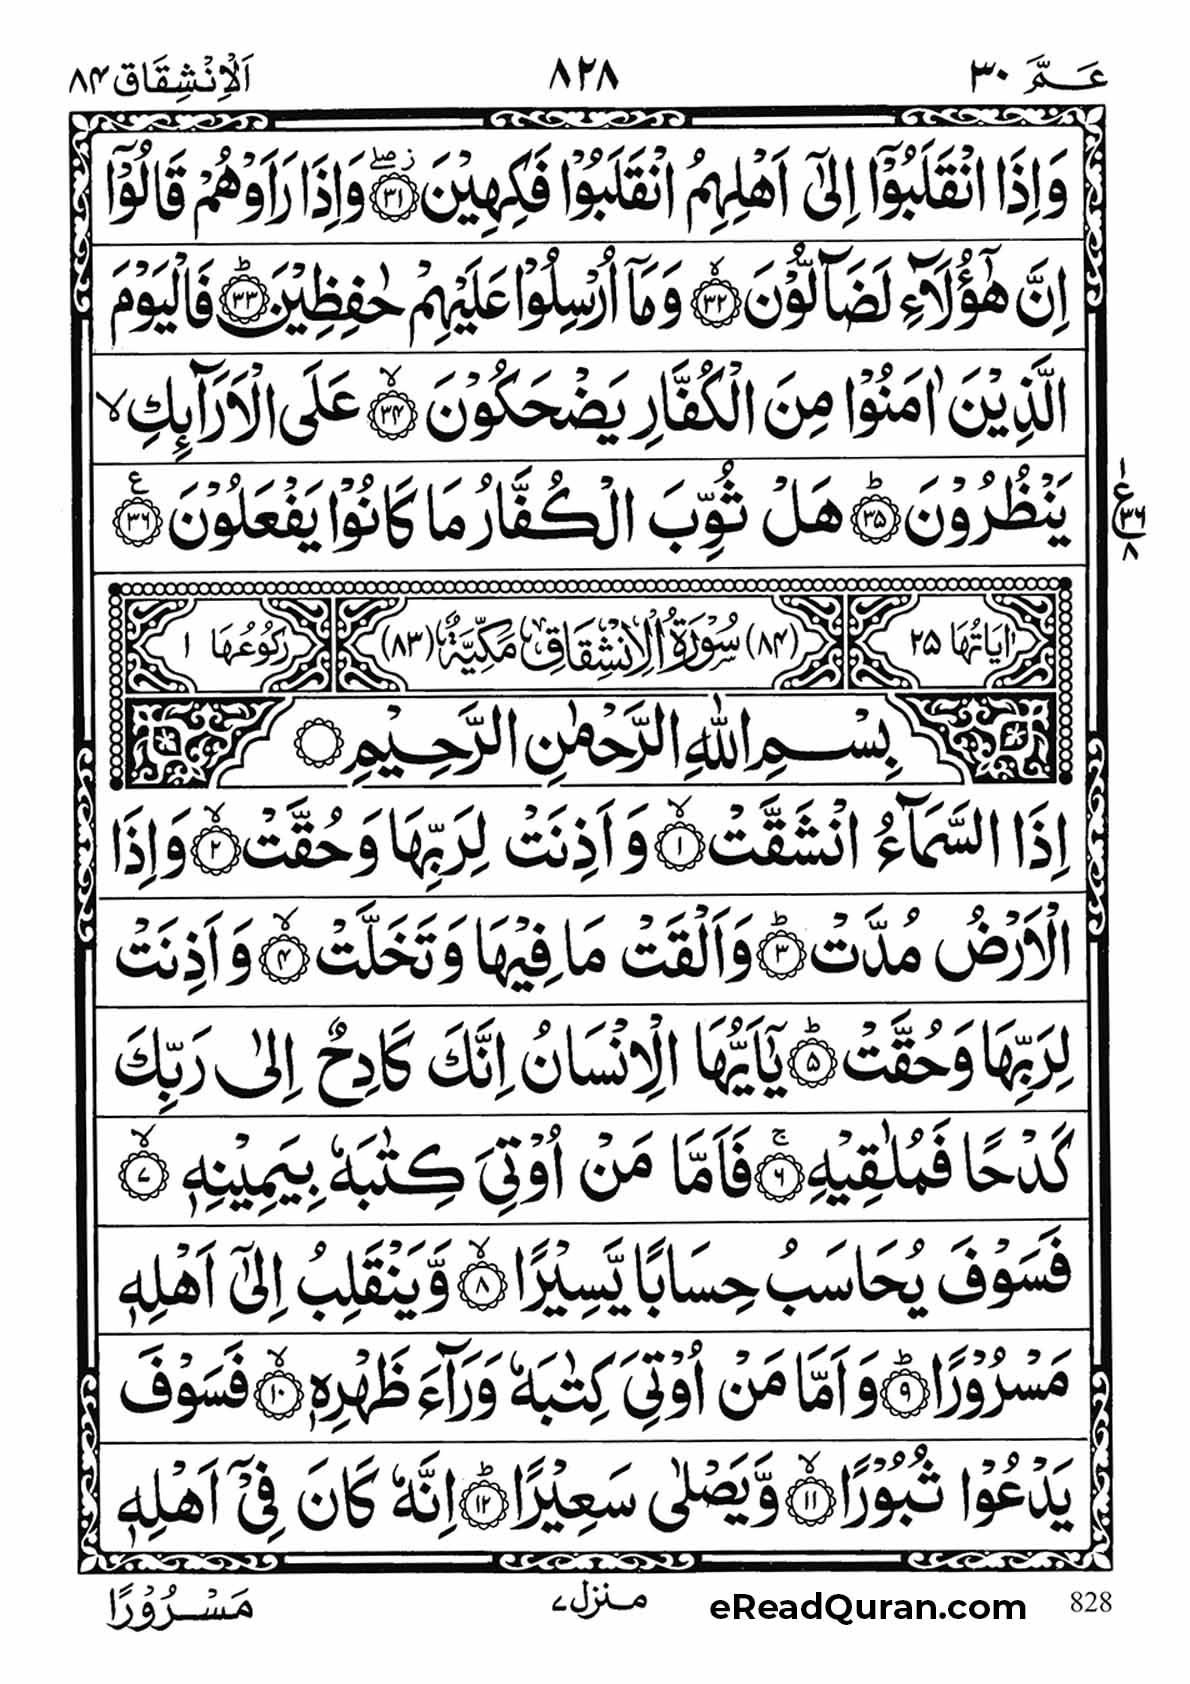 عَـمَّ ٣٠ ٨٢٨ اَلْاِنْشِقَاق ٨٤
وَاِذَا انْقَلَبُوْۤا اِلٰۤى اَهْلِهِمُ انْقَلَبُوْا فَكِهِيْنَ ۖ٘ ﴿٣١﴾ وَاِذَا رَاَوْهُمْ قَالُوْۤا
اِنَّ هٰۤؤُلَآءِ لَضَآلُّوْنَ ۙ ﴿٣٢﴾ وَمَاۤ اُرْسِلُوْا عَلَيْهِمْ حٰفِظِيْنَ ؕ ﴿٣٣﴾ فَالْيَوْمَ
الَّذِيْنَ اٰمَنُوْا مِنَ الْكُفَّارِ يَضْحَكُوْنَ ۙ ﴿٣٤﴾ عَلَى الْاَرَآئِكِ ۙ
يَنْظُرُوْنَ ؕ ﴿٣٥﴾ هَلْ ثُوِّبَ الْكُفَّارُ مَا كَانُوْا يَفْعَلُوْنَ ﴿٣٦﴾ ع
١ ع ٣٦ ٨
اٰيَاتُهَا ٢٥ (٨٤) سُوْرَةُ الْاِنْشِقَاقِ مَكِّيَّةٌ (٨٣) رُكُوْعُهَا ١
بِسْمِ اللّٰهِ الرَّحْمٰنِ الرَّحِيْمِ
اِذَا السَّمَآءُ انْشَقَّتْ ۙ ﴿١﴾ وَاَذِنَتْ لِرَبِّهَا وَحُقَّتْ ۙ ﴿٢﴾ وَاِذَا
الْاَرْضُ مُدَّتْ ؕ ﴿٣﴾ وَاَلْقَتْ مَا فِيْهَا وَتَخَلَّتْ ۙ ﴿٤﴾ وَاَذِنَتْ
لِرَبِّهَا وَحُقَّتْ ؕ ﴿٥﴾ يٰۤاَيُّهَا الْاِنْسَانُ اِنَّكَ كَادِحٌ اِلٰى رَبِّكَ
كَدْحًا فَمُلٰقِيْهِ ۚ ﴿٦﴾ فَاَمَّا مَنْ اُوْتِيَ كِتٰبَهٗ بِيَمِيْنِهٖ ۙ ﴿٧﴾
فَسَوْفَ يُحَاسَبُ حِسَابًا يَّسِيْرًا ۙ ﴿٨﴾ وَّيَنْقَلِبُ اِلٰۤى اَهْلِهٖ
مَسْرُوْرًا ؕ ﴿٩﴾ وَاَمَّا مَنْ اُوْتِيَ كِتٰبَهٗ وَرَآءَ ظَهْرِهٖ ۙ ﴿١٠﴾ فَسَوْفَ
يَدْعُوْا ثُبُوْرًا ۙ ﴿١١﴾ وَّيَصْلٰى سَعِيْرًا ؕ ﴿١٢﴾ اِنَّهٗ كَانَ فِيْۤ اَهْلِهٖ
828 eReadQuran.com منزل ٧ مَسْرُوْرًا